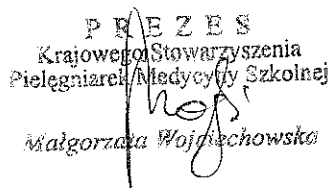 P R E Z E S
Krajowego Stowarzyszenia
Pielęgniarek Medycyny Szkolnej
Małgorzata Wojciechowska